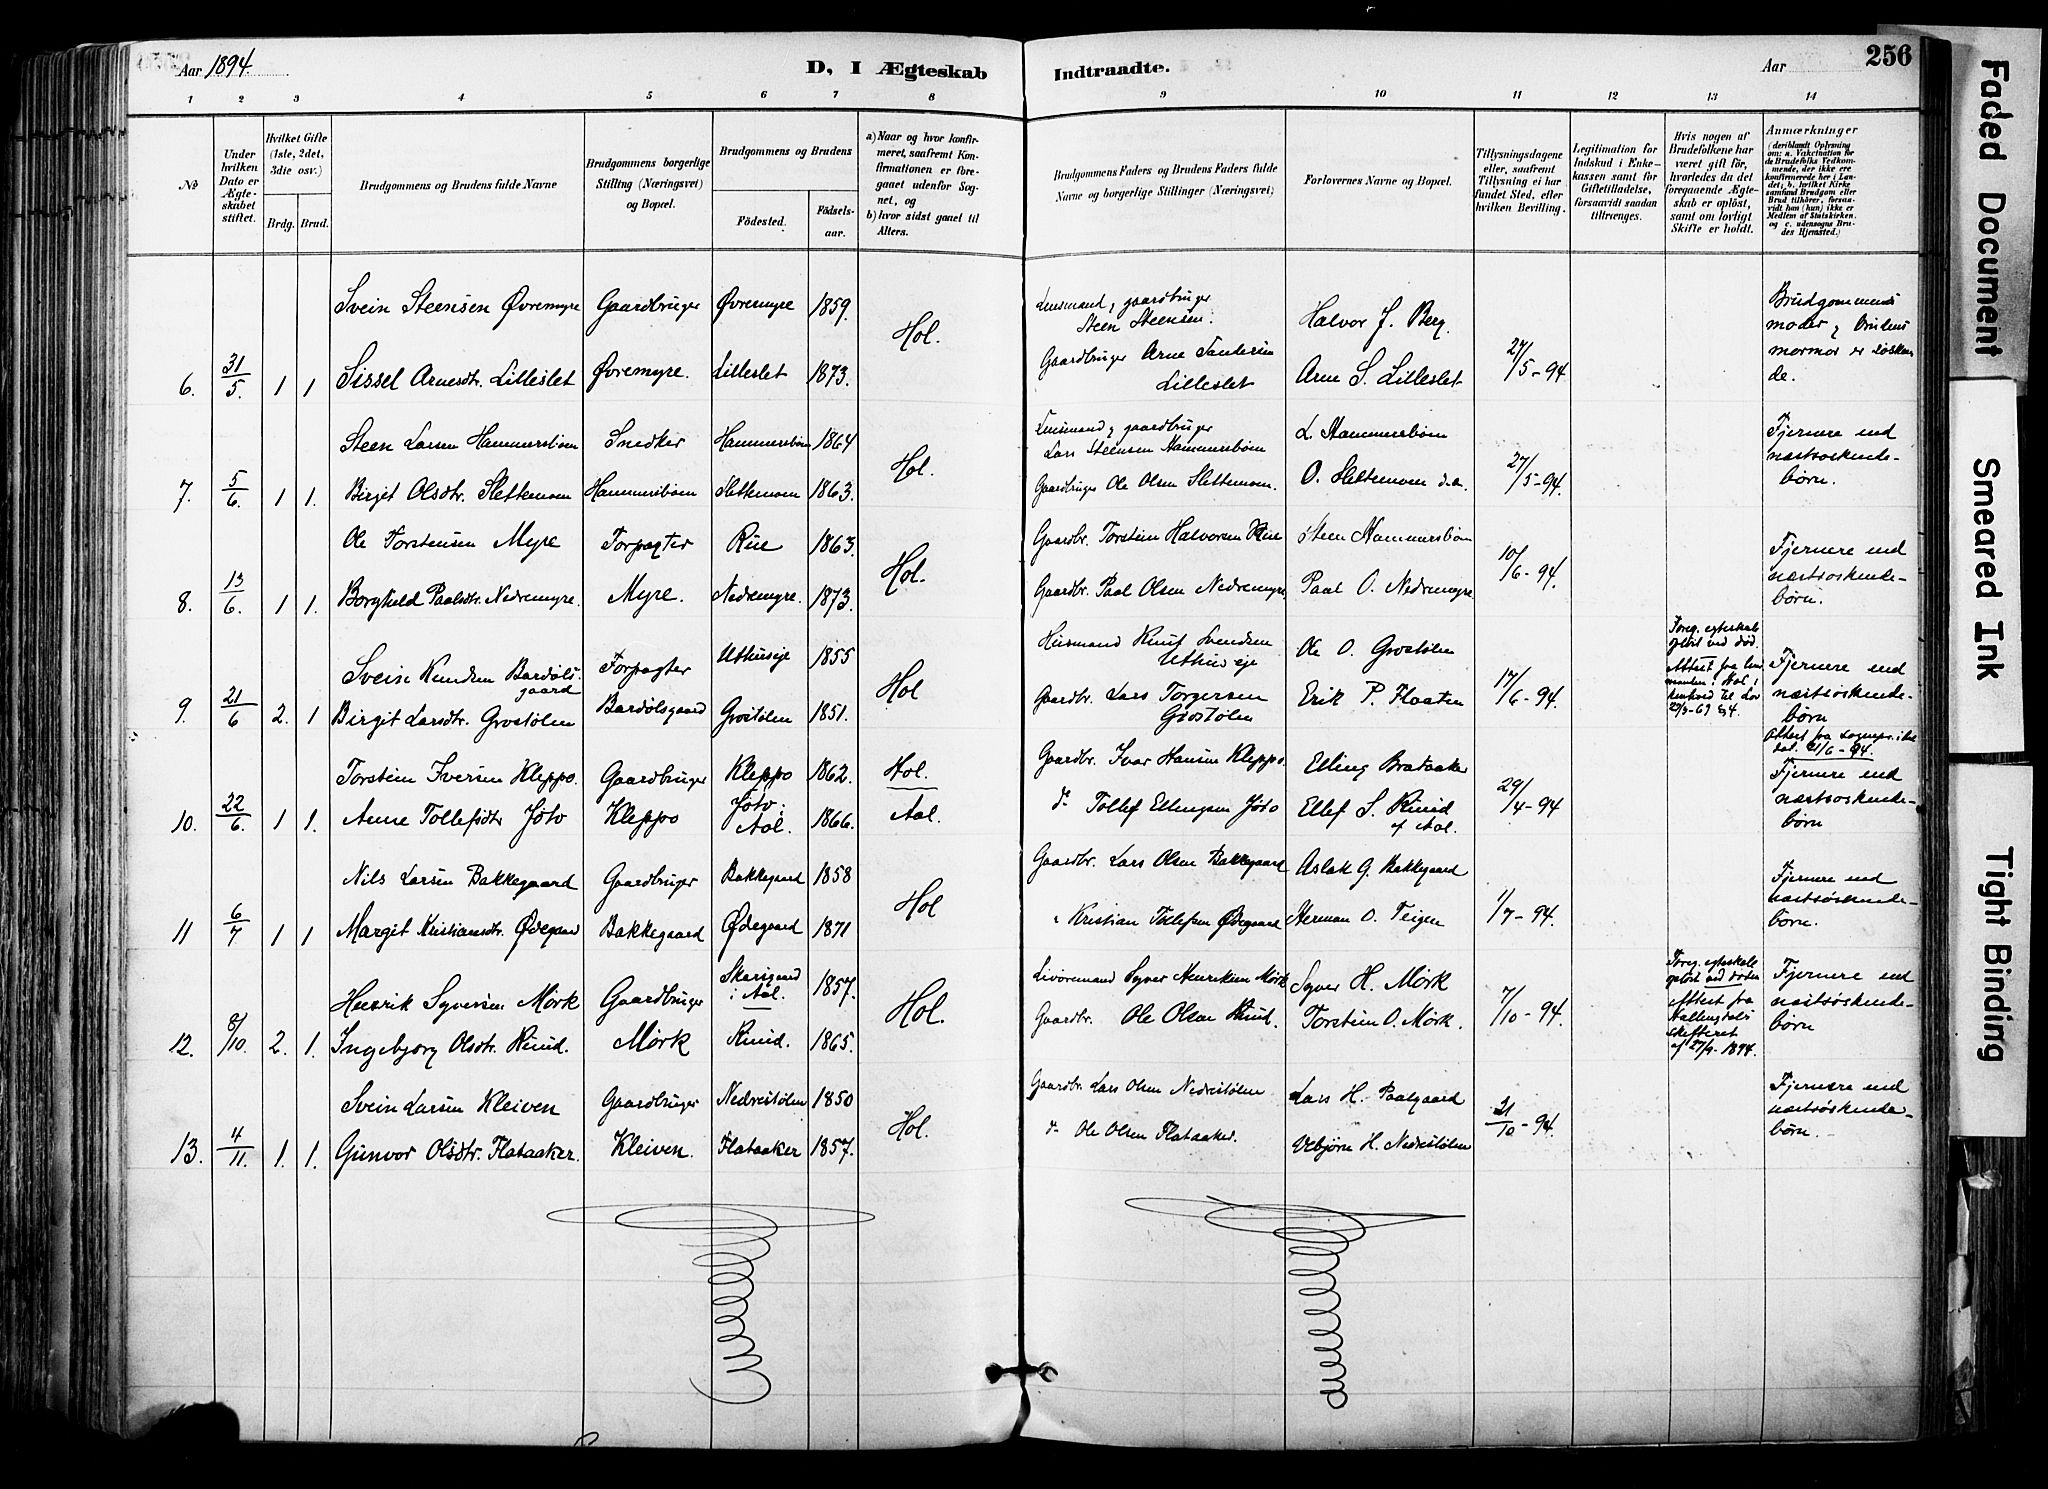 Aar 1894.
D, I Ægteskab Indtraadte.
Aar
256
1 2 3 4 5 6 7 8 9 10 11 12 13 14
No
Under hvilken Dato er Ægteskabet stiftet.
Hvilket Gifte (1ste, 2det, 3die osv.)
Brdg. Brud.
Brudgommens og Brudens fulde Navne
Brudgommens borgerlige Stilling (Næringsvei) og Bopæl.
Brudgommens og Brudens
Fødested.
Fødselsaar.
a) Naar og hvor konfirmeret, saafremt Konfirmationen er foregaaet udenfor Sognet, og
b) hvor sidst gaaet til Alters.
Brudgommens Faders og Brudens Faders fulde Navne og borgerlige Stillinger (Næringsvei)
Forlovernes Navne og Bopæl.
Tillysningsdagene eller, saafremt Tillysning ei har fundet Sted, efter hvilken Bevilling.
Legitimation for Indskud i Enkekassen samt for Giftetilladelse, forsaavidt saadan tiltrænges.
Hvis nogen af Brudefolkene har været gift før, hvorledes da det foregaaende Ægteskab er opløst, samt om lovligt Skifte er holdt.
Anmærkninger (deriblandt Oplysning om: a. Vakcination for de Brudefolks Vedkommende, der ikke ere konfirmerede her i Landet; b. hvilket Kirkesamfund Brudgom eller Brud tilhører, forsaavidt han (hun) ikke er Medlem af Statskirken, og c. udensogns Brudes Hjemsted.)
Svein Steensen Øvremyre Gaardbruger Øvremyre 1859. Hol. Lensmand & gaardbruger Steen Steensen. Halvor J. Berg. Brudgommens moder & brudens mormor er søskende.
6. 31/5. 1 1 Sissel Arnesdtr. Lilleslet Øvremyre. Lilleslet 1873. Gaardbruger Arne Sandersen Lilleslet Arne S. Lilleslet 27/5-94
Steen Larsen Hammersbøen Snedker Hammersbøen 1864 Hol. Lensmand & gaardbruger Lars Steensen Hammersbøen L. Hammersbøen Fjernere end næstsøskendebørn.
7. 5/6. 1 1. Birgit Olsdtr. Slettemoen Hammersbøen Slettemoen 1863. Gaardbruger Ole Olsen Slettemoen. O. Slettemoen d.e. 27/5-94.
Ole Torstensen Myre Forpagter Rue 1863. Hol. Gaardbr. Torstein Halvorsen Rue Steen Hammersbøen Fjernere end næstsøskendebørn.
8. 13/6. 1 1. Borghild Paalsdtr. Nedremyre. Myre. Nedremyre. 1873. Gaardbr. Paal Olsen Nedremyre Paal O. Nedremyre 10/6-94.
Svein Knudsen Bardølsgaard Forpagter Uthuseje 1855 Hol Husmand Knut Svendsen Uthus eje Ole O. Grostølen Foreg. egteskab opløst ved død. Attest fra lensmanden i Hol, i henhold til Lov 29/3-69 §4. Fjernere end næstsøskendebørn
9. 21/6 2. 1 Birgit Larsdtr. Grostølen Bardølsgaard Grostølen 1851. Gaardbr. Lars Torgersen Grostølen Erik P. Flaaten 17/6-94. Attest fra sognepr. 21/6-94.
Torstein Iversen Kleppo. Gaardbruger Kleppo 1862. Hol. Gaardbr. Ivar Hansen Kleppo. Elling Brataaker Fjernere end næstsøskendebørn
10. 22/6. 1 1. Anne Tollefsdtr Jøto Kleppo Jøto i Aal. 1866. Aal. do Tollef Ellingsen Jøto Ellef S. Ruud af Aal. 29/4-94
Nils Larsen Bakkegaard Gaardbruger Bakkegaard 1858 Hol Gaardbr. Lars Olsen Bakkegaard Aslak G. Bakkegaard Fjernere end næstsøskendebørn.
11 6/7 1 1 Margit Kristiansdtr. Ødegaard Bakkegaard Ødegaard 1871 " Kristian Tollefsen Ødegaard Herman O. Teigen 1/7-94.
Henrik Syversen Mørk Gaardbruger Skarsgaard i Aal. 1857. Hol. Livøremand Syver Henriksen Mørk Syver H. Mørk Foreg. egteskab opløst ved døden Attest fra Hallingdals skifteret af 27/9-1894. Fjernere end næstsøskendebørn
12. 8/10. 2. 1. Ingebjørg Olsdtr. Ruud. Mørk Ruud. 1865. Gaardbr. Ole Olsen Ruud. Torstein O. Mørk. 7/10-94.
Svein Larsen Kleiven Gaardbruger Nedrestølen 1850 Hol. Gaardbr. Lars Olsen Nedrestølen Lars H. Paalgaard Fjernere end næstsøskendebørn.
13. 4/11. 1. 1. Gunvor Olsdtr. Flataaker. Kleiven. Flataaker 1857. do Ole Olsen Flataaker. Vebjørn H. Nedrestølen 21/10-94.
Faded Document
Smeared Ink
Tight Binding